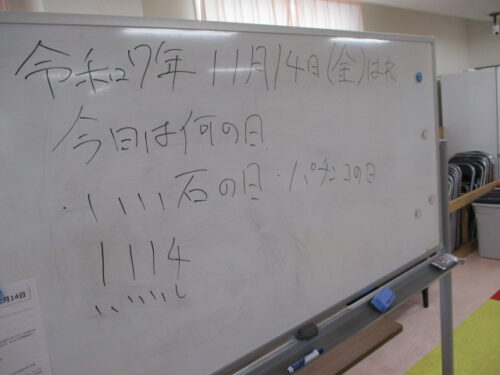 令和7年 11月14日(金)はれ
今日は何の日
・いい石の日・パチンコの日
1114
いいいし
月14日